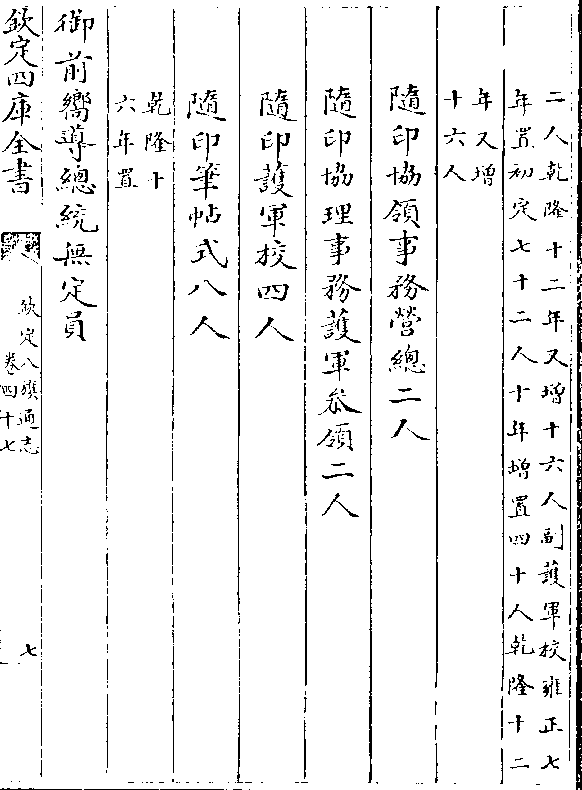 二人乾隆十二年又增十六人副護軍校雍正七
年置初定七十二人十年增置四十人乾隆十二
年又增
十六人
隨印協領事務營總二人
隨印協理事務護軍叅領二人
隨印護軍校四人
隨印筆帖式八人
乾隆十
六年置
御前嚮導總統無定員
欽定四庫全書
欽定八旗通志
卷四十七
七